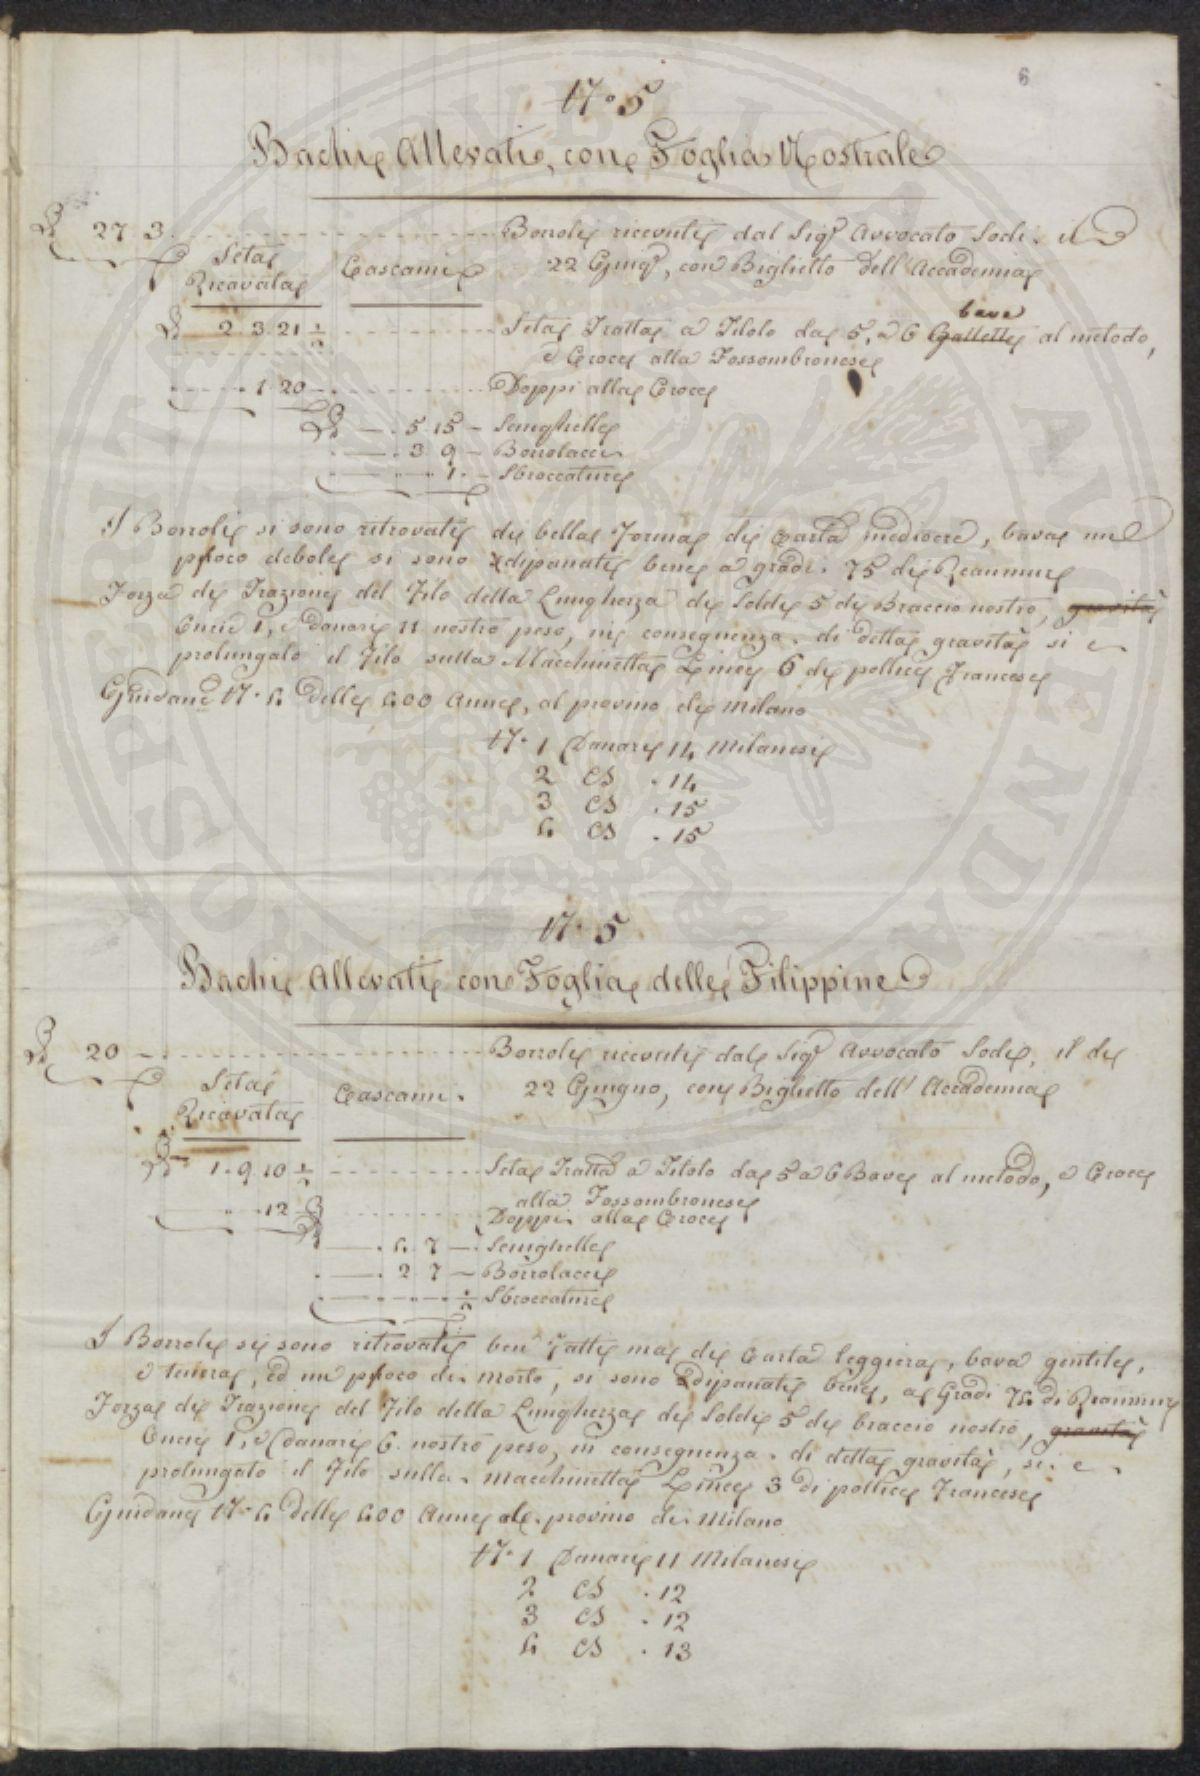 6
N.° 5
Bachi Allevati, con Foglia Nostrale
℔ 27 3 Bozzoli ricevuti dal Sig.r Avvocato Sodi. il
Seta Ricavata
Cascami
22 Giug.o, con Biglietto dell'Accademia
bave
℔ 2 3 21 ½ Seta Tratta a Titolo da 5, a 6 Gallette al metodo,
e Croce alla Fossombronese
1 20 Doppi alla Croce
℔ — . 5 15 — Strughelle
3 9 — Bozzolacci
1 — Sbroccature
I Bozzoli si sono ritrovati di bella Forma di Carta mediocre, bava un
poco debole si sono dipanati bene a gradi. 75 di Reaumur
Forza di Trazione del Filo della Lunghezza di Soldi 5 di Braccio nostro, gravità
Oncie 1, e danari 11 nostro peso, in conseguenza di detta gravità si e
prolungato il Filo sulla Macchinetta Linee 6 di pollice Francese
Guidane N.° 4 delle 400 Aune, al provino di Milano
N.° 1 Danari 14 Milanesi
2 CS . 14
3 CS . 15
4 CS . 15
N.° 5
Bachi Allevati con Foglia delle Filippine
℔ 20 — Bozzoli ricevuti dal Sig.r Avvocato Sodi, il di
Seta Ricavata
Cascami.
22 Giugno, con Biglietto dell'Accademia
℔ 1 . 9 10 ½ Seta Tratta a Titolo da 5 a 6 Bave al metodo, e Croce
alla Fossombronese
12 — Doppi alla Croce
℔ — . 4 7 — Strughelle
— . 2 7 — Bozzolacci
½ Sbroccature
I Bozzoli si sono ritrovati ben fatti ma di Carta leggiera, bava gentile,
e tenera, ed un poco di morto, si sono dipanati bene, a Gradi 74 di Reaumur
Forza di Trazione del Filo della Lunghezza di Soldi 5 di braccio nostro, gravità
Oncie 1, e danari 6. nostro peso, in conseguenza di detta gravità, si e
prolungato il Filo sulla macchinetta Linee 3 di pollice Francese
Guidane N.° 4 delle 400 Aune al provino di Milano
N.° 1 Danari 11 Milanesi
2 CS . 12
3 CS . 12
4 CS . 13